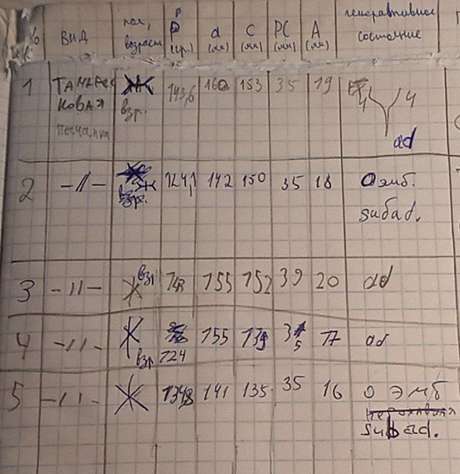 № ВИД пол, возраст P (гр.) d (мм) C (мм) PC (мм) A (мм) генеративное состояние
1 Тамарисковая песчанка Ж взр. 143,6 160 153 35 19 4 4 ad
2 -//- Ж взр. 124,1 142 150 35 18 0 эмб. subad.
3 -//- Ж взр 155 152 39 20 ad
4 -//- Ж взр 124 155 139 17 ad
5 -//- Ж 134,8 141 135 35 16 0 эмб subad.